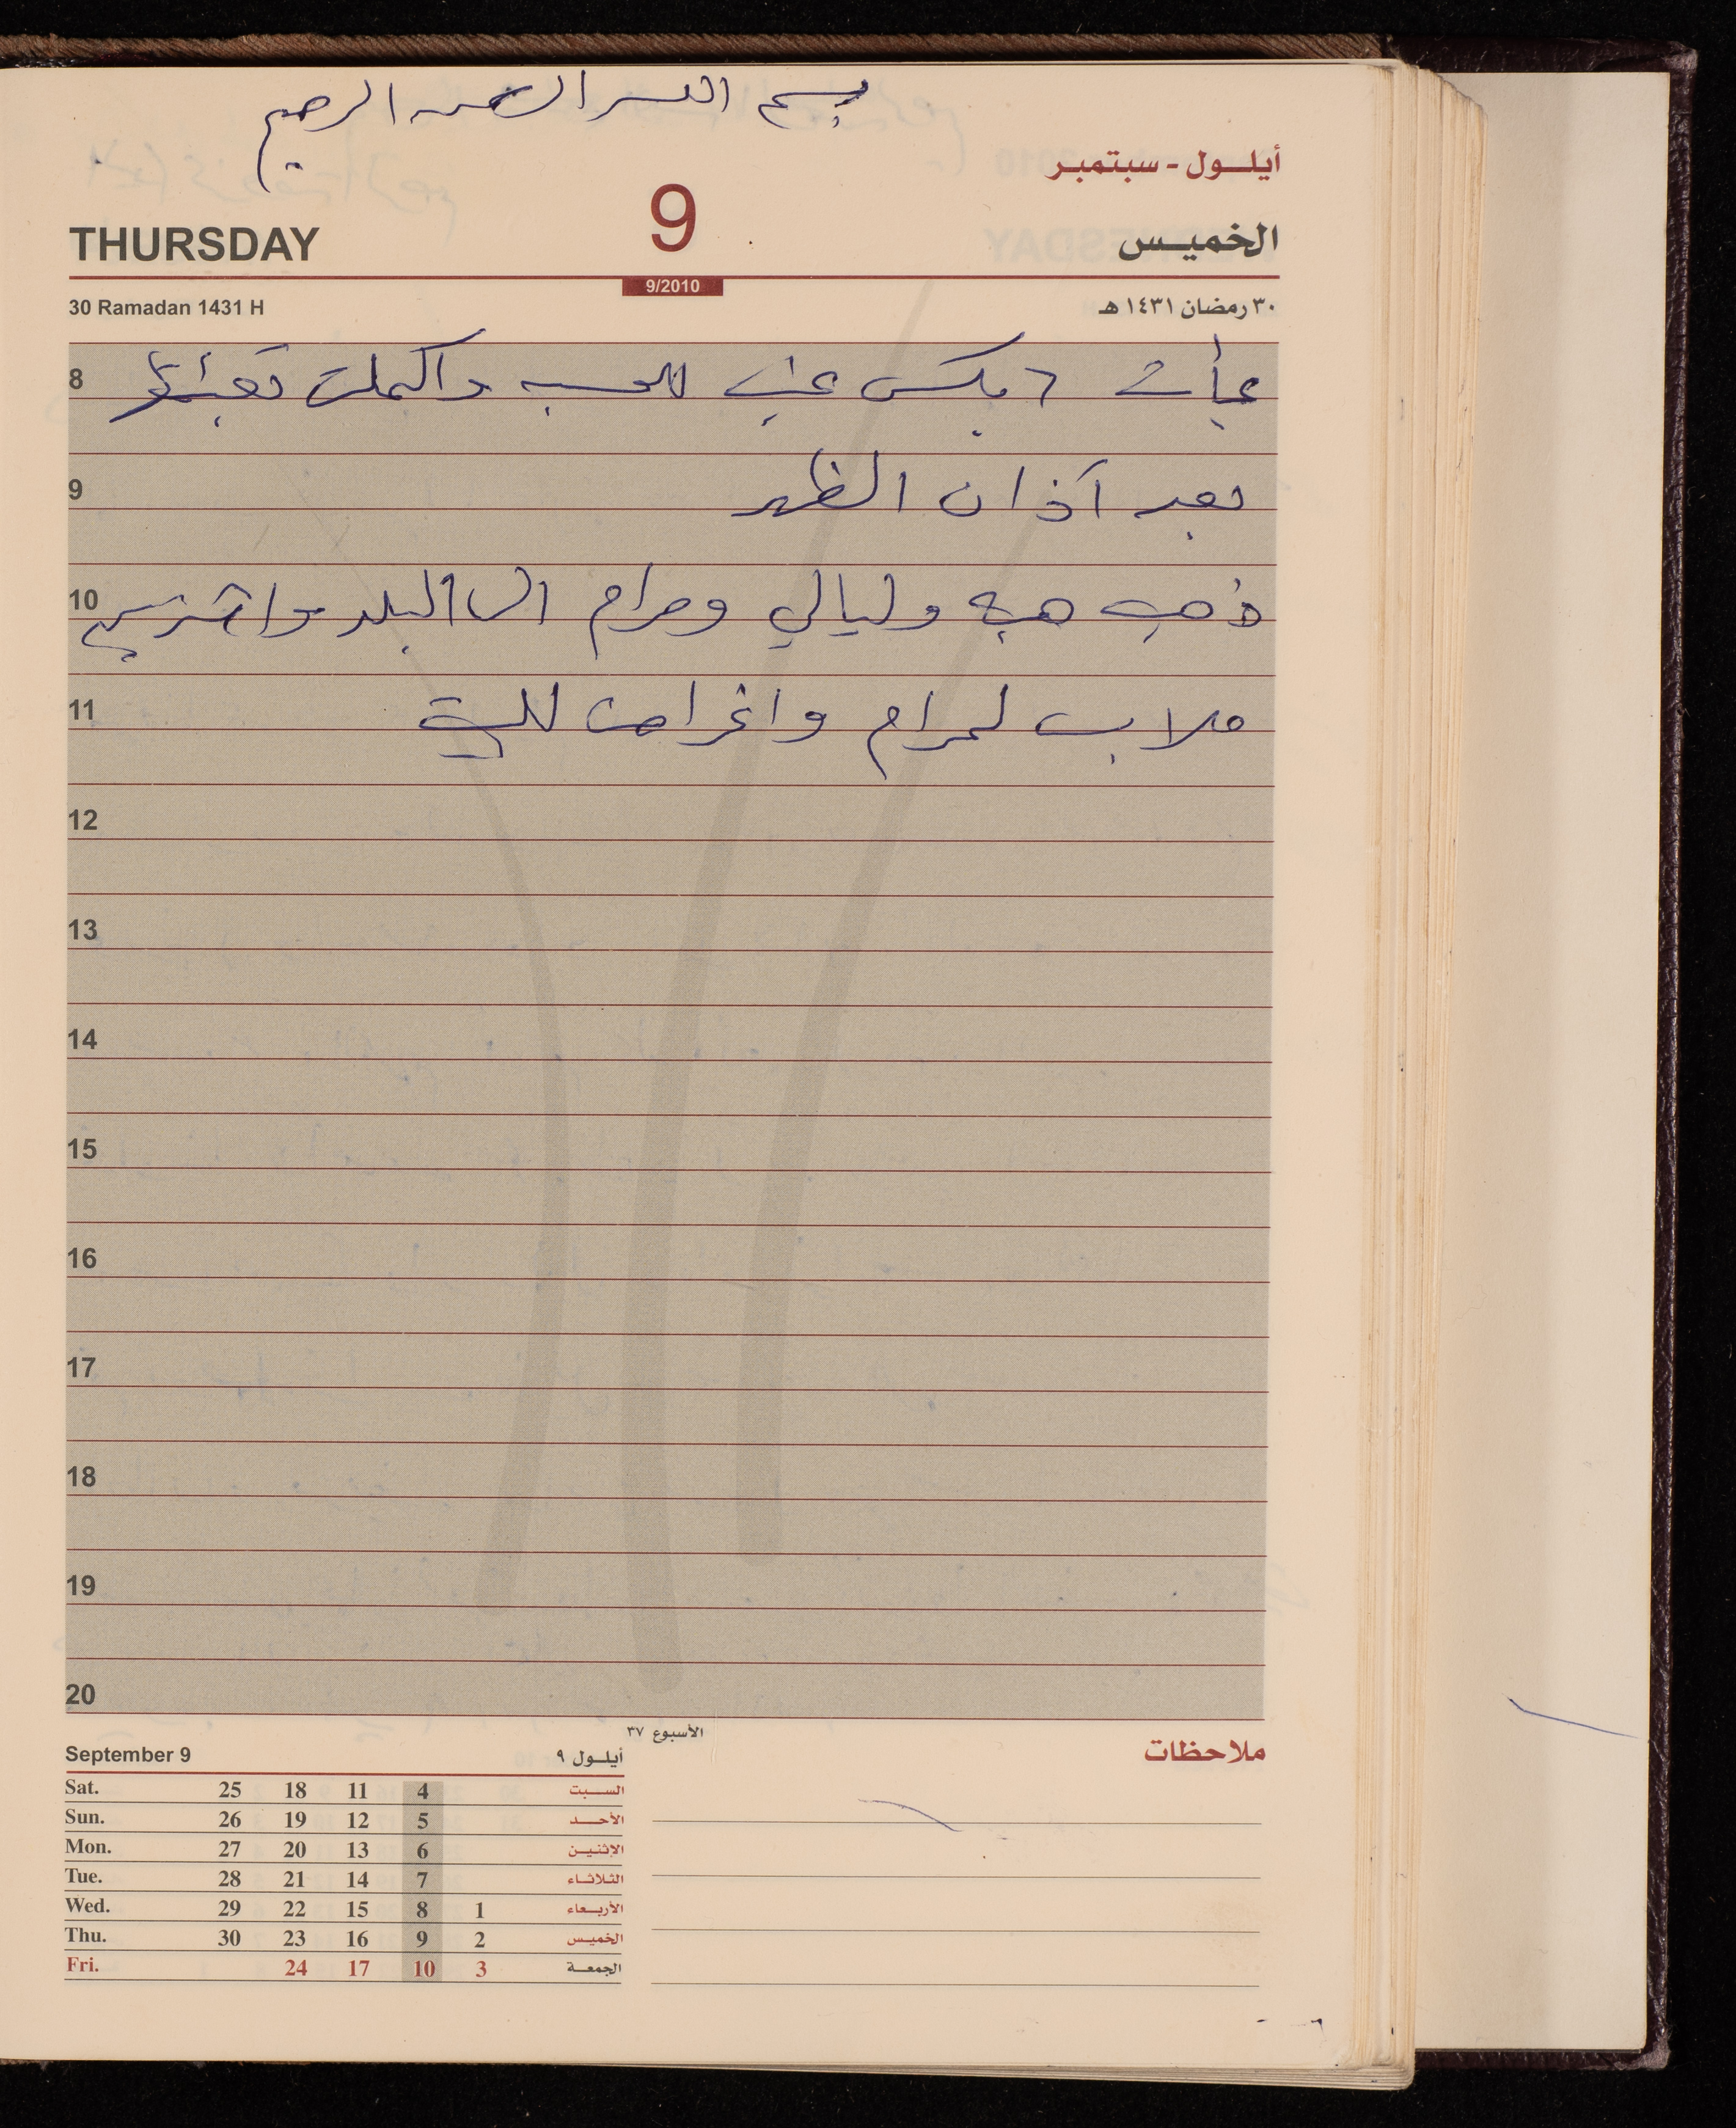 بسم الله الرحمن الرحيم
أيلول - سبتمبر
THURSDAY 9 الخميس
9/2010
30 Ramadan 1431 H ٣٠ رمضان ١٤٣١ هـ
8 عبأت ٦ بكس عنب للحسبه واكملت تعبئتها
9 بعد آذان الظهر
10 ذهب هبه وليالي ومرام الى البلد واشترى
11 ملابس لمرام واغراض للبيت
12
13
14
15
16
17
18
19
20
الأسبوع ٣٧
ملاحظات
September 9 أيلول ٩
Sat. 25 18 11 4 السبت
Sun. 26 19 12 5 الأحد
Mon. 27 20 13 6 الإثنين
Tue. 28 21 14 7 الثلاثاء
Wed. 29 22 15 8 1 الأربعاء
Thu. 30 23 16 9 2 الخميس
Fri. 24 17 10 3 الجمعة